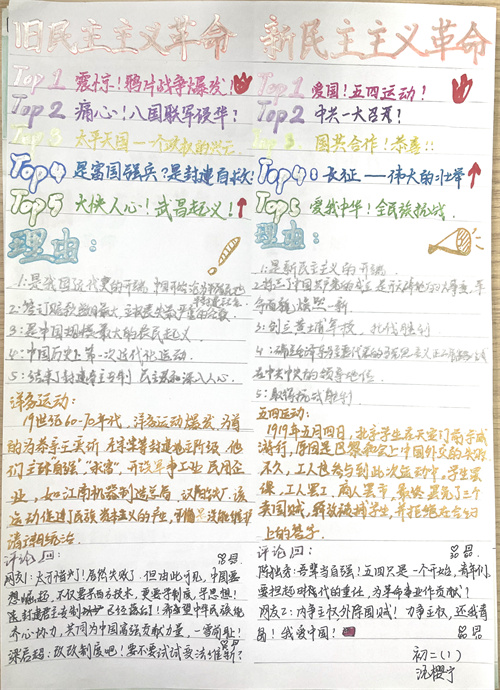 旧民主主义革命
Top 1 震惊!鸦片战争爆发!
Top 2 痛心!八国联军侵华?
Top 3 太平天国一个政权的兴亡
Top 4 是富国强兵?是封建自救
Top 5 大快人心!武昌起义!
理由:
1:是我国近代史的开端 中国开始沦为半殖民地
半封建社会
2:签订赔款数目最大、主权丧失最严重的条约
3:是中国规模最大的农民起义
4:中国历史上第一次近代化运动.
5:结束了封建君主专制 民主共和深入人心.
洋务运动:
19世纪60-70年代,洋务运动爆发,为首
的为恭亲王奕䜣 左宗棠等封建地主阶级,他
们主张"自强""求富",开设军事工业 民用企
业,如:江南机器制造总局,汉阳铁厂.该
运动促进了民族资本主义的产生,可惜是没能维护
清朝统治
评论回:
网友1:太可惜了!居然失败了.但由此可见,中国要
想崛起,不仅要学西方技术,更要学制度,学思想!
医:封建君主专制 已经落后!希望中华民族能
齐心协力,共同为中国富强贡献力量,一雪前耻!
梁启超:改改制度吧!要不要试试变法维新?
新民主主义革命
Top 1 爱国!五四运动!
Top 2 中共一大召开!
Top 3 国共合作!恭喜!!
Top 4 长征——伟大的壮举
Top 5 爱我中华!全民族抗战.
理由:
1:是新民主主义的开端.
2: 中国共产党的成立是开天辟地的大事变,革
命面貌焕然一新.
3:创立黄埔军校,北伐胜利
4:确立毛泽东为主要代表的马克思主义正确路线
在中共中央的领导地位.
5:取得抗战胜利
五四运动:
1919年五月四日,北京学生在天安门前示威
游行,原因是巴黎和会上中国外交的失败
不久,工人也参与到此次运动中,学生罢
课,工人罢工,商人罢市,最终 罢免了三个
卖国贼,释放被捕学生,并拒绝在合约
上的签字
评论回:
陈独秀:吾辈当自强!五四只是一个开始,青年们
要担起时代的重任,为革命事业作贡献!
网友2:内争主权外除国贼!力争主权,还我青
岛!我爱中国!
初二(1)
沈樱宁